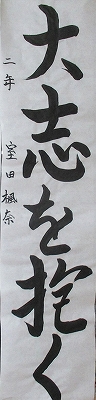 大志を抱く
二年 室田楓奈